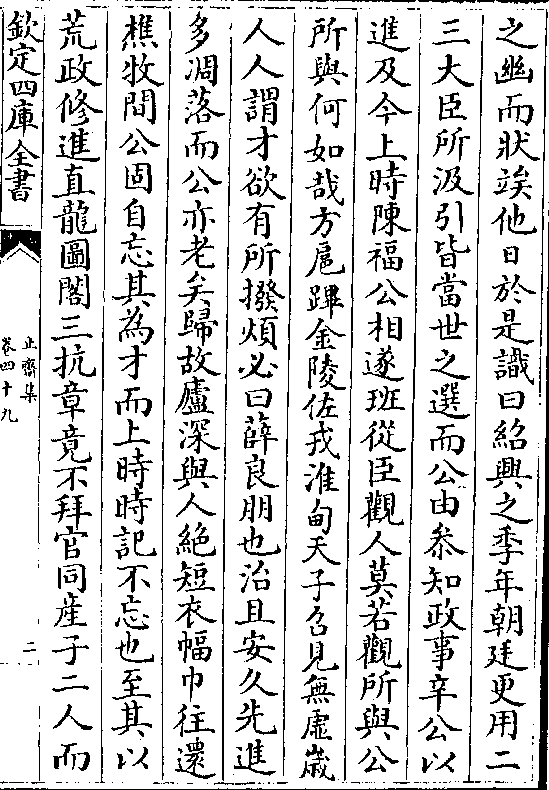 之幽而狀竢他日於是識曰紹興之季年朝廷更用二
三大臣所汲引皆當世之選而公由叅知政事辛公以
進及今上時陳福公相遂班從臣觀人莫若觀所與公
所與何如哉方扈蹕金陵佐戎淮甸天子召見無虚歳
人人謂才欲有所撥煩必曰薛良朋也治且安久先進
多凋落而公亦老矣歸故廬深與人絶短衣幅巾往還
樵牧間公固自忘其為才而上時時記不忘也至其以
荒政修進直龍圖閣三抗章竟不拜官同産子二人而
欽定四庫全書
止齋集
卷四十九
二